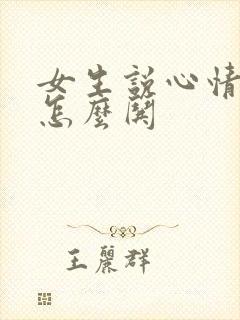 女生説心情
怎麼関
王麗群